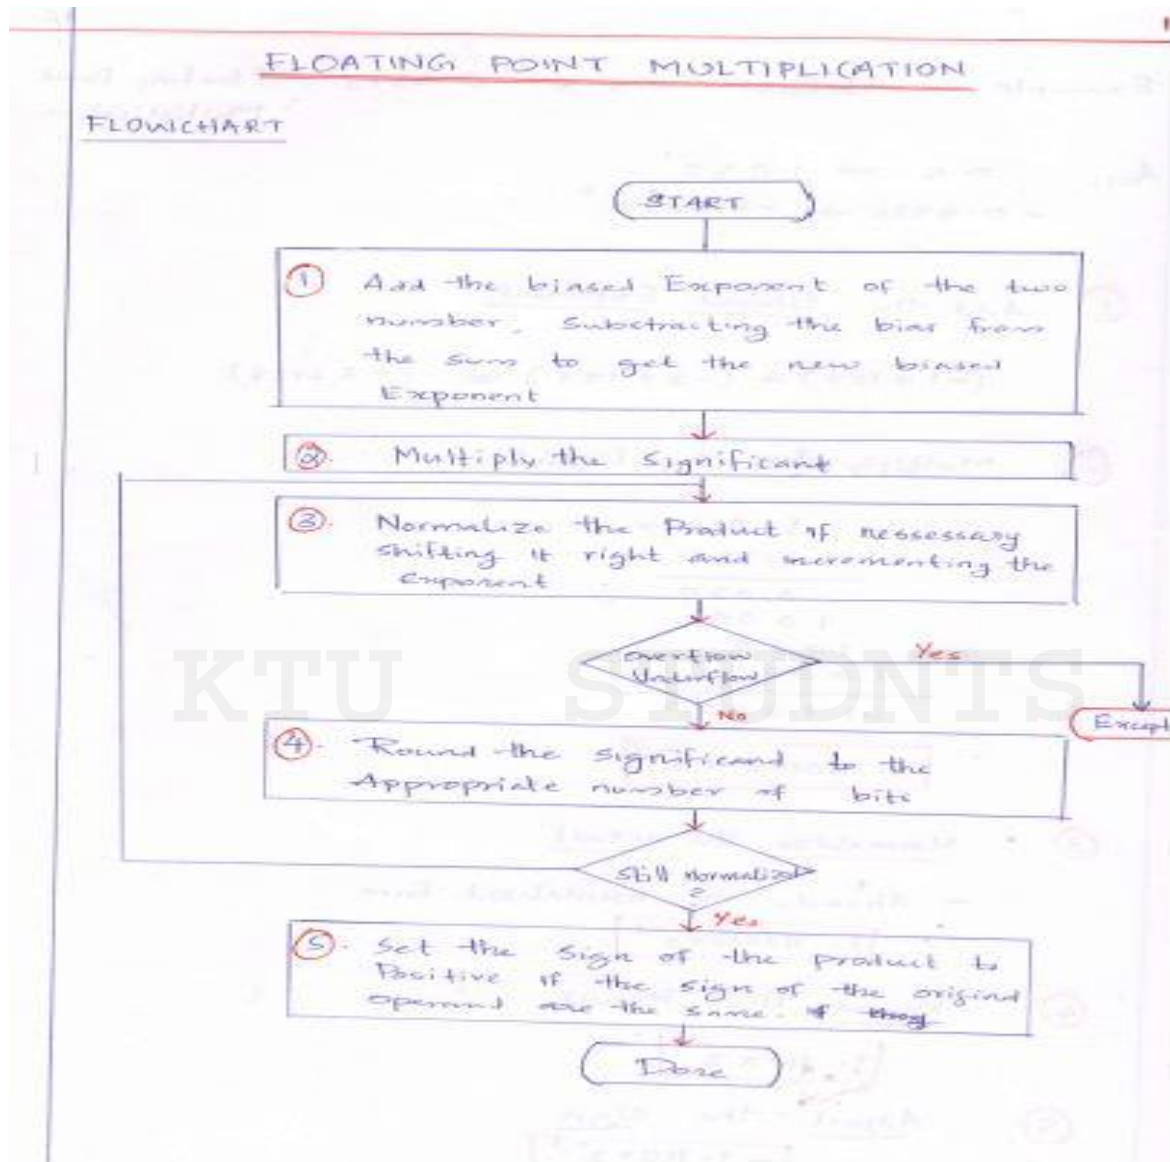 FLOATING POINT MULTIPLICATION
FLOWCHART
START
① Add the biased Exponent of the two
number, Substracting the bias from
the sum to get the new biased
Exponent
②. Multiply the Significant
③. Normalize the Product if nessessary
shifting it right and incrementing the
exponent
Overflow
Underflow
Yes
No
Except
④. Round the significand to the
Appropriate number of bits
Still normalized
?
Yes
⑤. Set the Sign of the product to
Positive if the sign of the original
operand are the same.
Done
KTU STUDNTS